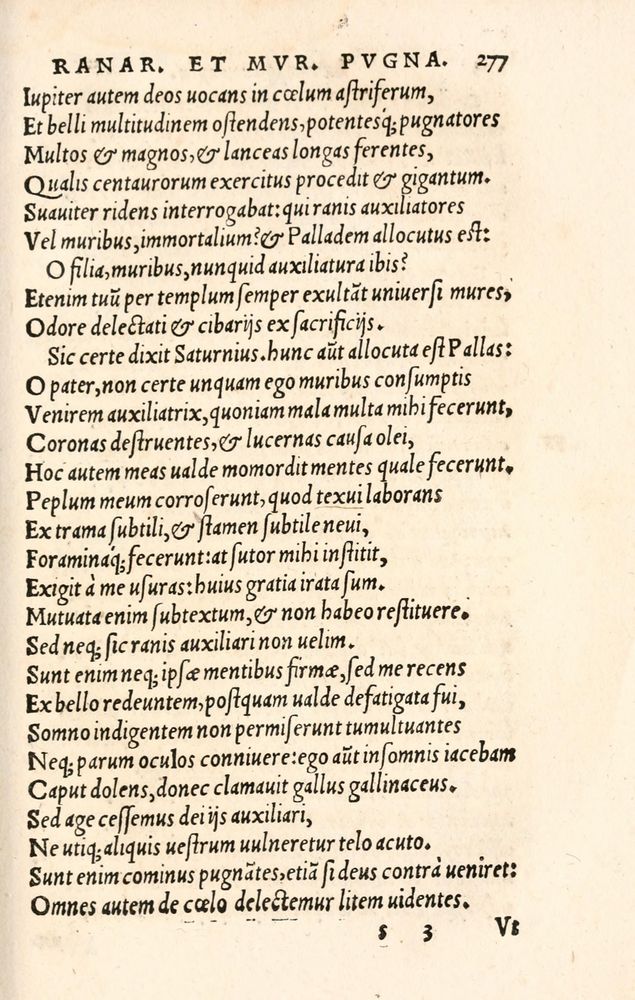 RANAR. ET MVR. PVGNA. 277
Iupiter autem deos uocans in cœlum aſtriferum,
Et belli multitudinem oſtendens, potentesq́; pugnatores
Multos & magnos, & lanceas longas ferentes,
Qualis centaurorum exercitus procedit & gigantum.
Suauiter ridens interrogabat: qui ranis auxiliatores
Vel muribus, immortalium? & Palladem allocutus eſt:
O filia, muribus, nunquid auxiliatura ibis?
Etenim tuũ per templum ſemper exultãt uniuerſi mures,
Odore delectati & cibarijs ex ſacrificijs.
Sic certe dixit Saturnius. hunc aũt allocuta eſt Pallas:
O pater, non certe unquam ego muribus conſumptis
Venirem auxiliatrix, quoniam mala multa mihi fecerunt,
Coronas deſtruentes, & lucernas cauſa olei,
Hoc autem meas ualde momordit mentes quale fecerunt.
Peplum meum corroſerunt, quod texui laborans
Ex trama ſubtili, & ſtamen ſubtile neui,
Foraminaq́; fecerunt: at ſutor mihi inſtitit,
Exigit à me uſuras: huius gratia irata ſum.
Mutuata enim ſubtextum, & non habeo reſtituere.
Sed neq; ſic ranis auxiliari non uelim.
Sunt enim neq; ipſæ mentibus firmæ, ſed me recens
Ex bello redeuntem, poſtquam ualde defatigata fui,
Somno indigentem non permiſerunt tumultuantes
Neq; parum oculos conniuere: ego aũt inſomnis iacebam
Caput dolens, donec clamauit gallus gallinaceus.
Sed age ceſſemus dei ijs auxiliari,
Ne utiq; aliquis ueſtrum uulneretur telo acuto.
Sunt enim cominus pugnãtes, etiã ſi deus contrà ueniret:
Omnes autem de cœlo delectemur litem uidentes.
s 3 Vt